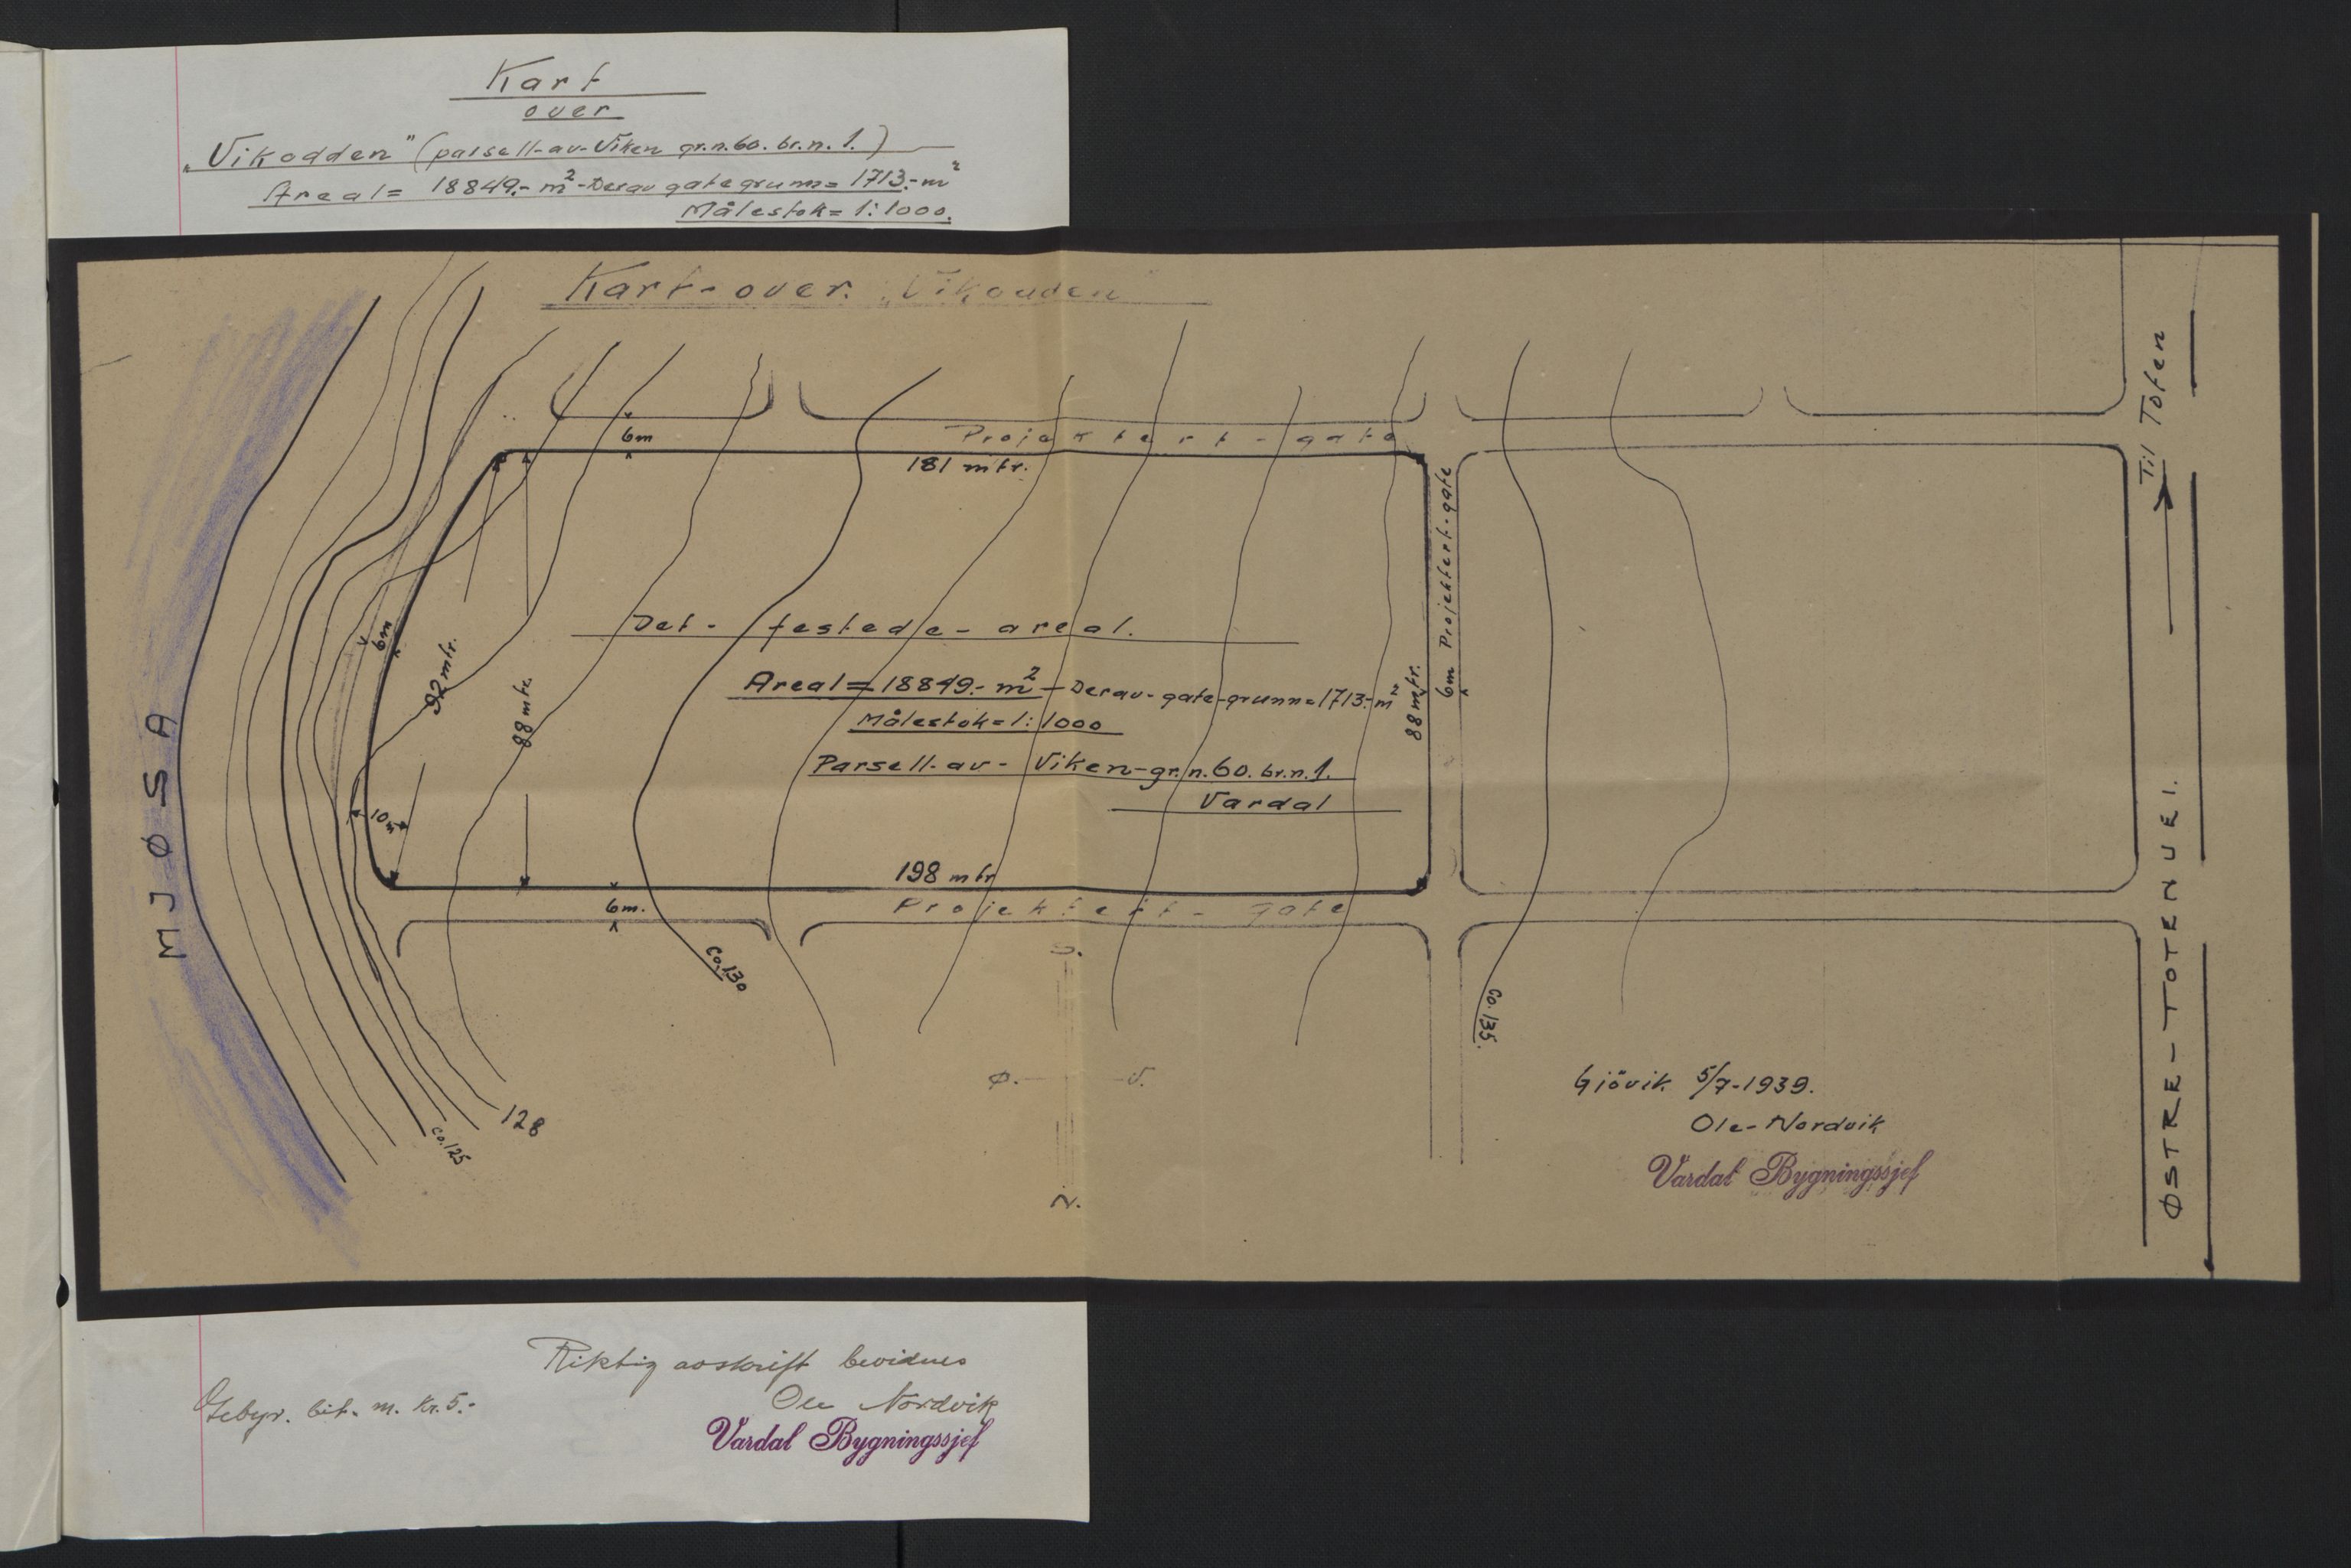 Kart
over
„Vikodden" (parsell-av-Viken gr.n.60. br.n. 1.)
Areal= 18849.- m²-Derav gategrunn= 1713.-m²
Målestok= 1:1000.
Kart-over. „Vikodden
6m
Projektert-gate
181 mtr.
Til Toten
6m
92 mtr.
88 mtr.
10m
MJØSA
Det- festede- areal.
Areal=18849.- m²-Derav-gate-grunn=1713.-m²
Målestok=1:1000
Parsell-av- Viken-gr.n.60. br.n.1.
Vardal
88 mtr.
6m Projektert-gate
198 mtr
6m.
Projektert- gate
Co.130
Co.135.
S.
Ø. V.
N.
128
Co.125
Gjövik 5/7-1939.
Ole-Nordvik
Vardal Bygningssjef
ØSTRE-TOTENVEI.
Riktig avskrift bevidnes
Gebyr. bet. m. Kr. 5.-
Ole Nordvik
Vardal Bygningssjef